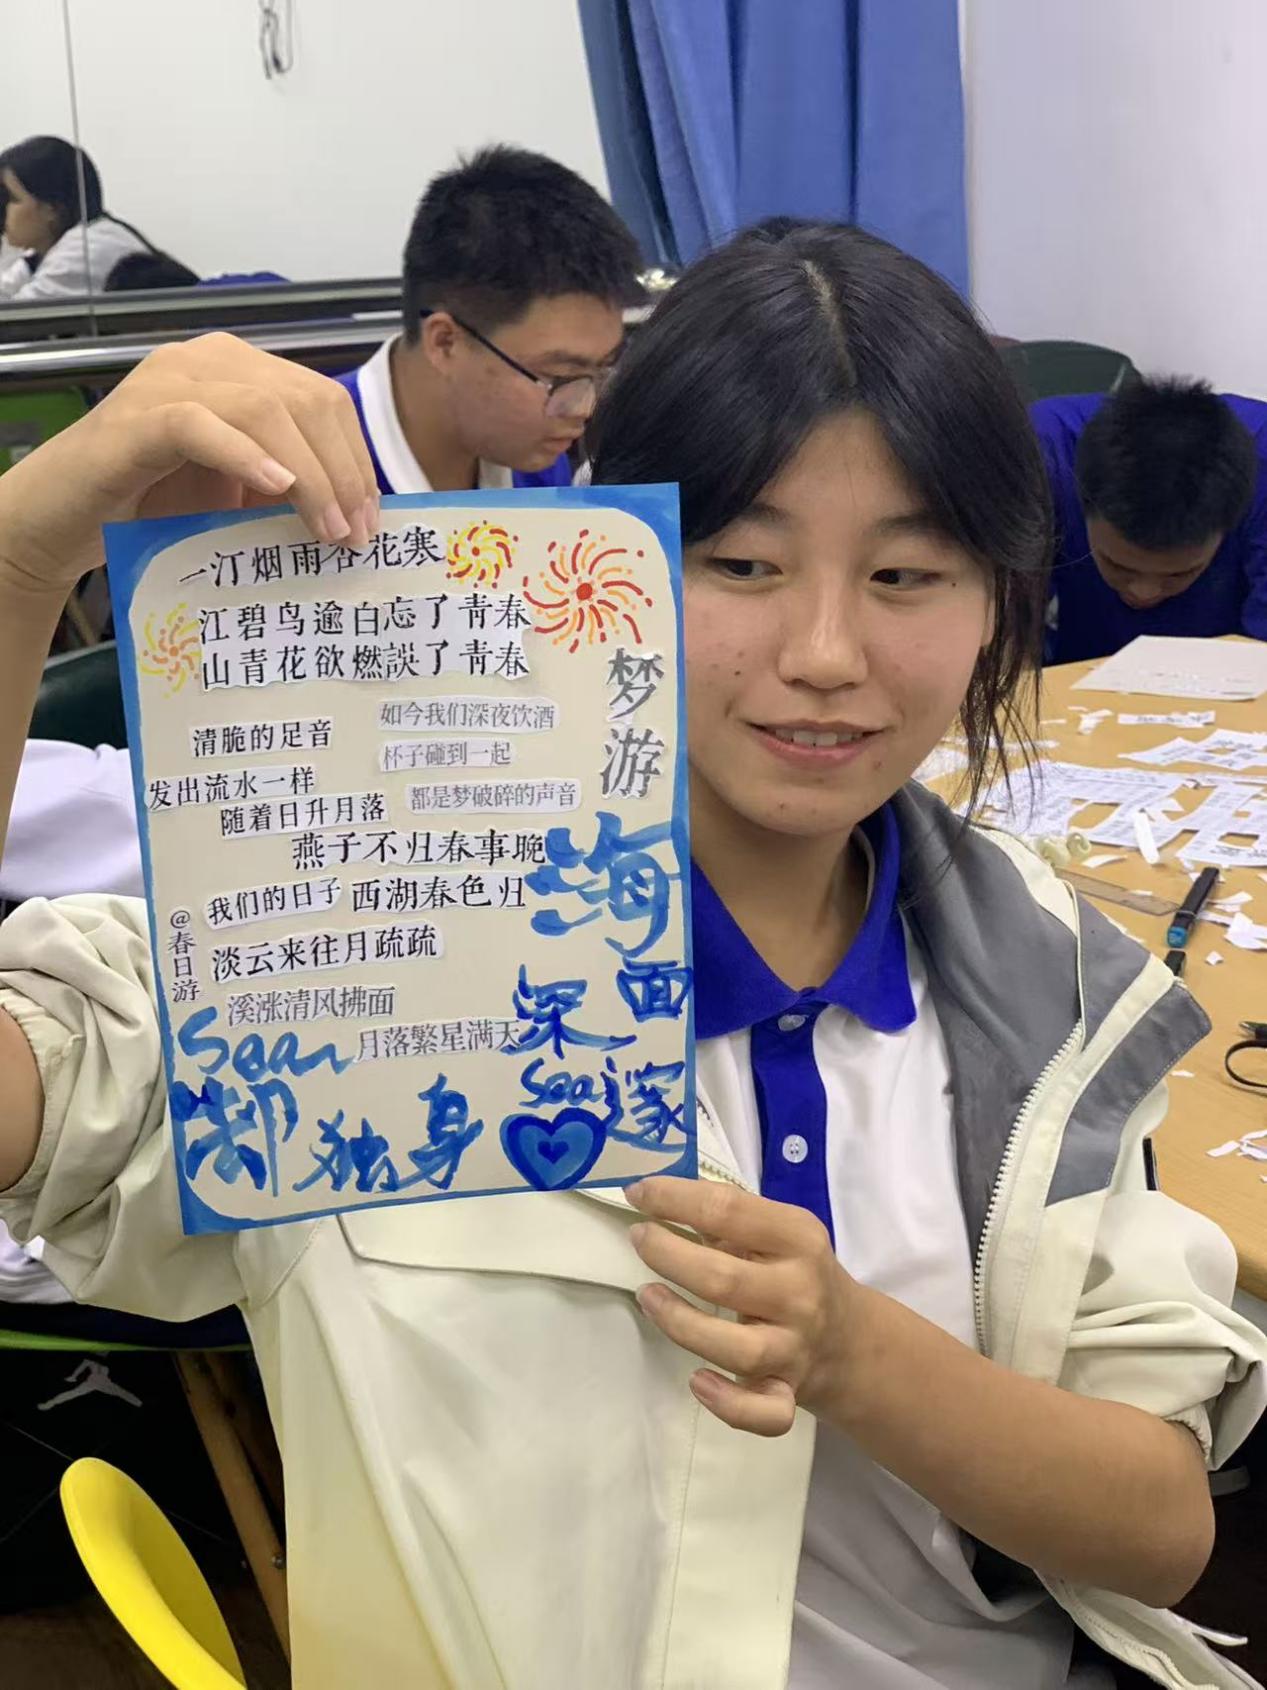 一汀烟雨杏花寒
江碧鸟逾白忘了青春
山青花欲燃誤了青春
梦游
清脆的足音
如今我们深夜饮酒
杯子碰到一起
发出流水一样
都是梦破碎的声音
随着日升月落
燕子不归春事晚
我们的日子 西湖春色归
@春日游
淡云来往月疏疏
溪涨清风拂面
月落繁星满天
海面
深邃
Sean
Sea
都独身